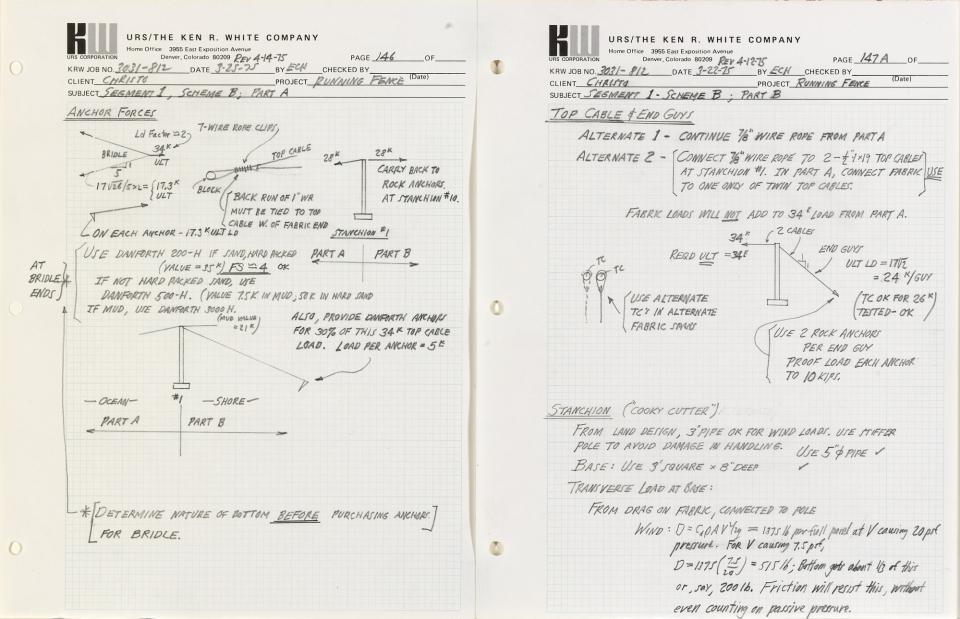 KW
URS CORPORATION
URS/THE KEN R. WHITE COMPANY
Home Office 3955 East Exposition Avenue
Denver, Colorado 80209 REV 4-14-75
PAGE 146 OF
KRW JOB NO. 3031-812 DATE 3-25-75 BY ECH CHECKED BY
(Date)
CLIENT CHRISTO PROJECT RUNNING FENCE
SUBJECT SEGMENT 1, SCHEME B; PART A
ANCHOR FORCES
Ld Factor = 2
7-WIRE ROPE CLIPS
34K
ULT
BRIDLE
TOP CABLE
28K 28K
5
1
= {17.3K
ULT
BLOCK
CARRY BACK TO
ROCK ANCHORS.
AT STANCHION #10.
BACK RUN OF 1" WR
MUST BE TIED TO TOP
CABLE W. OF FABRIC END
ON EACH ANCHOR - 17.3K ULT LD
STANCHION #1
PART A PART B
AT
BRIDLE *
ENDS
USE DANFORTH 200-H IF SAND, HARD PACKED
(VALUE = 35K) FS = 4 OK
IF NOT HARD PACKED SAND, USE
DANFORTH 500-H. (VALUE 7.5K IN MUD; 50K IN HARD SAND
IF MUD, USE DANFORTH 3000 H.
(MUD VALUE
= 21K)
ALSO, PROVIDE DANFORTH ANCHORS
FOR 30% OF THIS 34K TOP CABLE
LOAD. LOAD PER ANCHOR = 5K
#1
—OCEAN— —SHORE—
PART A PART B
* [DETERMINE NATURE OF BOTTOM BEFORE PURCHASING ANCHORS.
FOR BRIDLE.]
KW
URS CORPORATION
URS/THE KEN R. WHITE COMPANY
Home Office 3955 East Exposition Avenue
Denver, Colorado 80209 REV 4-12-75
PAGE 147A OF
KRW JOB NO. 3031-812 DATE 3-22-75 BY ECH CHECKED BY
(Date)
CLIENT CHRISTO PROJECT RUNNING FENCE
SUBJECT SEGMENT 1 - SCHEME B; PART B
TOP CABLE & END GUYS
ALTERNATE 1 - CONTINUE 7/8" WIRE ROPE FROM PART A
ALTERNATE 2 - CONNECT 7/8" WIRE ROPE TO 2-1/2" 1×19 TOP CABLES
AT STANCHION #1. IN PART A, CONNECT FABRIC USE
TO ONE ONLY OF TWIN TOP CABLES.
FABRIC LOADS WILL NOT ADD TO 34K LOAD FROM PART A.
34K
2 CABLES
REQ'D ULT = 34K
END GUYS
1
1
ULT LD = 17√2
= 24K/GUY
(TC OK FOR 26K)
(TESTED - OK)
TC
TC
USE ALTERNATE
TC'S IN ALTERNATE
FABRIC SPANS
USE 2 ROCK ANCHORS
PER END GUY
PROOF LOAD EACH ANCHOR
TO 10 KIPS.
STANCHION ("COOKY CUTTER")
FROM LAND DESIGN, 3" PIPE OK FOR WIND LOADS. USE STIFFER
POLE TO AVOID DAMAGE IN HANDLING. USE 5" φ PIPE ✓
BASE: USE 3' SQUARE × 8" DEEP ✓
TRANSVERSE LOAD AT BASE:
FROM DRAG ON FABRIC, CONNECTED TO POLE
WIND: D = CdρAV²/2g = 1375 lb per full panel at V causing 20 psf
pressure. For V causing 7.5 psf,
D = 1375 (7.5/20) = 515 lb; Bottom gets about 1/3 of this
or, say, 200 lb. Friction will resist this, without
even counting on passive pressure.